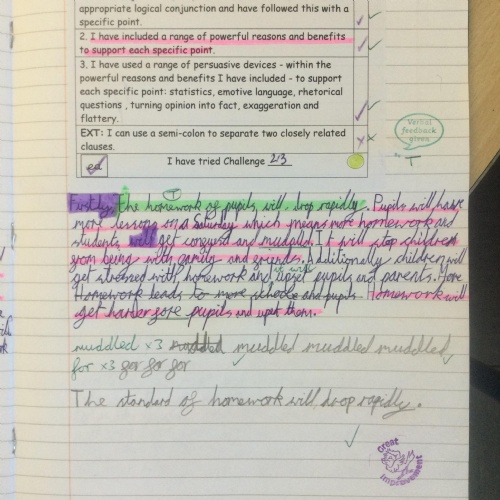 appropriate logical conjunction and have followed this with a
specific point.
2. I have included a range of powerful reasons and benefits
to support each specific point.
3. I have used a range of persuasive devices - within the
powerful reasons and benefits I have included - to support
each specific point: statistics, emotive language, rhetorical
questions , turning opinion into fact, exaggeration and
flattery.
EXT: I can use a semi-colon to separate two closely related
clauses.
I have tried Challenge 2/3
Verbal
feedback
given
T
Firstly, the homework of pupils will drop rapidly. Pupils will have
more lessons on a Saturday which means more homework and
students will get confused and muddul. It will stop children
from being with family and friends. Additionally children will
get stressed with homework and it will upset pupils and parents. More
Homework leads to more schools and pupils Homework will
get harder fore pupils and upet them.
muddled x3 muddled muddled muddled
for x3 for for for
The standard of homework will drop rapidly.
Great
improvement